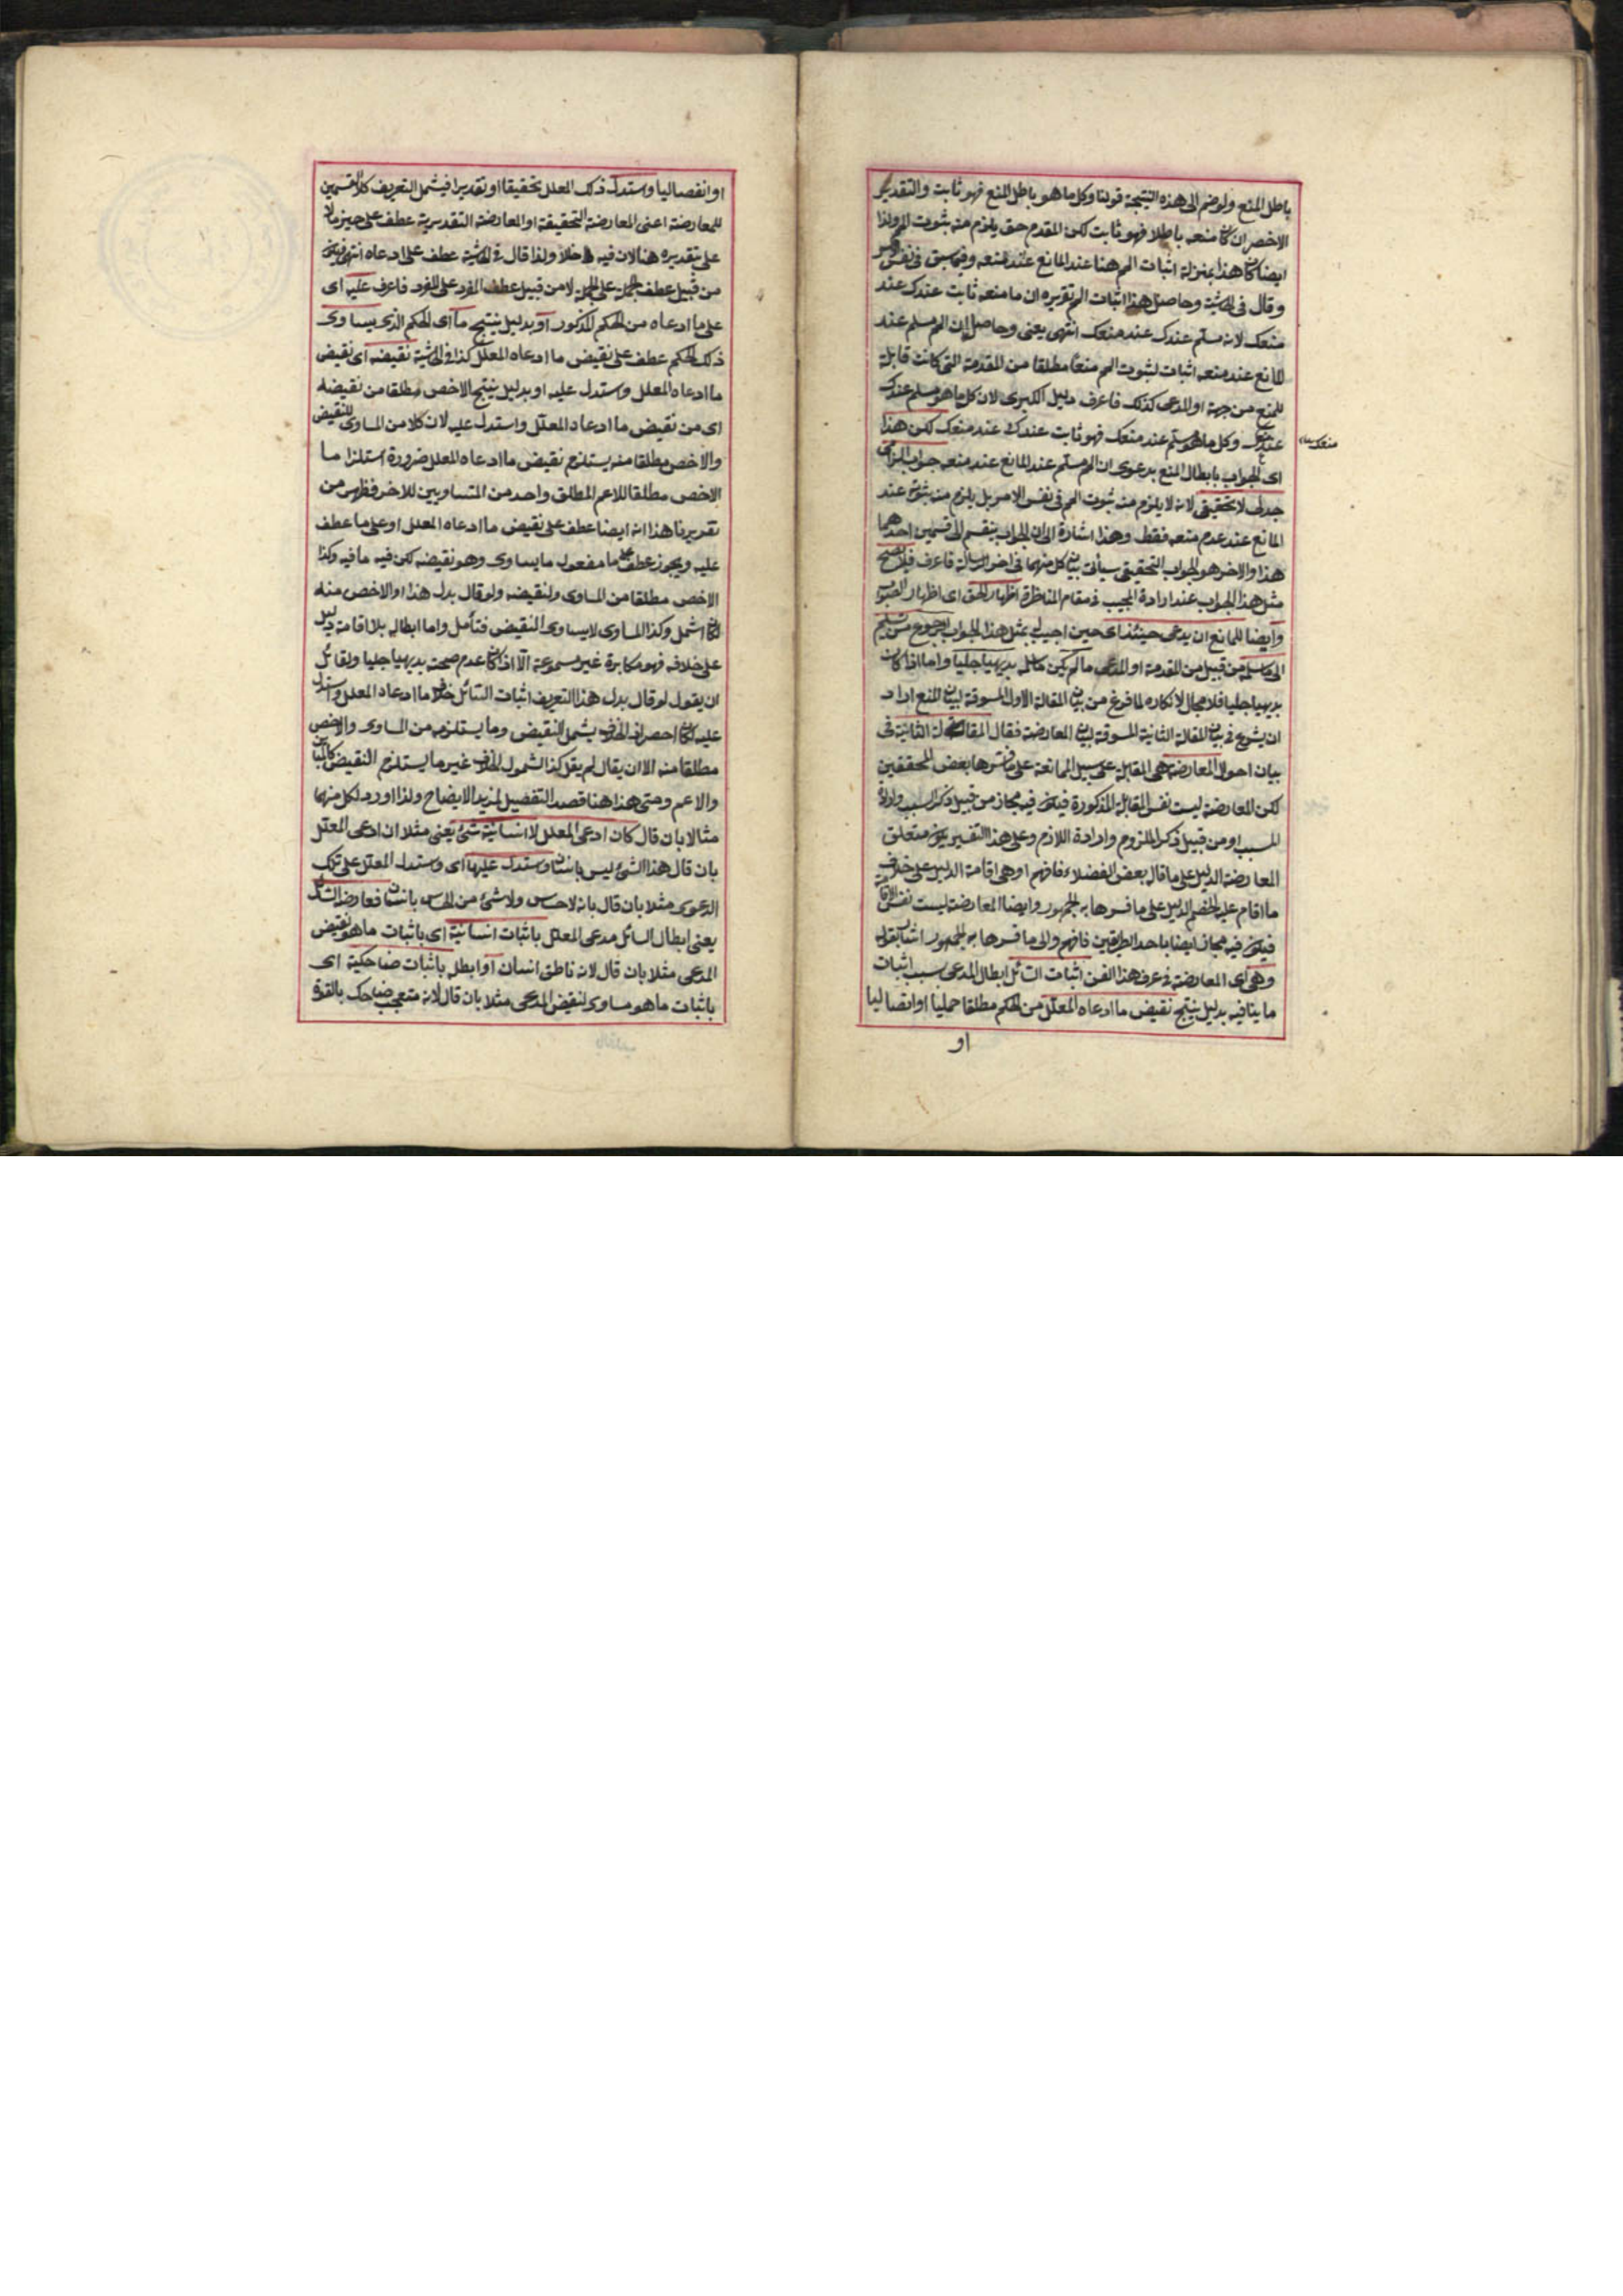 باطل المنع ولو ضم الى هذه النتيجة قولنا وكل ما هو باطل المنع فهو ثابت والتقدير
الاخصر ان كان منعه باطلا فهو ثابت لكن المقدم حق يلزم منه ثبوت المم ولذا
ايضا كان هذا بمنزلة اثبات المم هنا عند المانع عند منعه وفيما سبق في نفس
وقال في الحاشية وحاصل هذا اثبات المم تقريره ان ما منعه ثابت عندك عند
منعك لانه مسلم عندك عند منعك انتهى يعنى وحاصل ان المم مسلم عند
المانع عند منعه اثبات لثبوت المم منعا مطلقا من المقدمة التى كانت قابلة
للمنع من جهة او المدعى كذلك فاعرف دليل الكبرى لان كل ما هو مسلم عندك
عند منعك وكل ما هو مسلم عند منعك فهو ثابت عندك عند منعك لكن هذا
منعك
اى الجواب بابطال المنع بدعوى ان المم مسلم عند المانع عند منعه جواب الزامى
جدلى لا تحقيقى لانه لا يلزم منه ثبوت المم فى نفس الامر بل يلزم منه ثبوته عند
المانع عند عدم منعه فقط وهذا اشارة الى ان الجواب ينقسم الى قسمين احدهما
هذا والاخر هو الجواب التحقيقى سيأتى بيان كل منهما فى اخر الرسالة فاعرف فلا يصح
مثل هذا الجواب عند ارادة المجيب فى مقام المناظرة اظهار الحق اى اظهار الصواب
وايضا للمانع ان يدعى حينئذ اى حين اجيب بمثل هذا الجواب الرجوع من تسليم
الى ما سلمه من قبيل من المقدمة او المدعى ما لم يكن ما سلمه بديهيا جليا واما اذا كان
بديهيا جليا فلا مجال لانكاره لما فرغ من بيان المقالة الاولى المسوقة لبيان المنع اراد
ان يشرع فى بيان المقالة الثانية المسوقة لبيان المعارضة فقال المقالة الثانية فى
بيان احوال المعارضة هى المقابلة على سبيل الممانعة على ما فسرها بعض المحققين
لكن المعارضة ليست نفس المقابلة المذكورة فيكون فيه مجاز من قبيل ذكر السبب وارادة
المسبب او من قبيل ذكر الملزوم وارادة اللازم وعلى هذا التفسير يكون متعلق
المعارضة الدليل على ما قاله بعض الفضلاء فافهم او هى اقامة الدليل على خلاف
ما اقام عليه الخصم الدليل على ما فسرها به الجمهور وايضا المعارضة ليست نفس الاقامة
فيكون فيه مجاز ايضا باحد الطريقين فافهم والى ما فسرها به الجمهور اشار بقوله
وهى اى المعارضة فى عرف هذا الفن اثبات السائل ابطال المدعى بسبب اثبات
ما ينافيه بدليل ينتج نقيض ما ادعاه المعلل من الحكم مطلقا حمليا او اتصاليا
او
او انفصاليا واستدل ذلك المعلل تحقيقا او تقديرا فيشمل التعريف كلا القسمين
للمعارضة اعنى المعارضة التحقيقة او المعارضة التقديرية عطف على حيز ما لا
على تقديره هنا لان فيه ولذا قال فى الحاشية عطف على ادعاه انتهى فيكون
من قبيل عطف الجملة على الجملة لا من قبيل عطف المفرد على المفرد فاعرف عليه اى
على ما ادعاه من الحكم المذكور او بدليل ينتج ما اى الحكم الذى يساوى
ذلك الحكم عطف على نقيض ما ادعاه المعلل كذا فى الحاشية نقيضه اى نقيض
ما ادعاه المعلل واستدل عليه او بدليل ينتج الاخص مطلقا من نقيضه
اى من نقيض ما ادعاه المعلل واستدل عليه لان كلا من المساوى للنقيض
والاخص مطلقا منه يستلزم نقيض ما ادعاه المعلل ضرورة استلزام ما
الاخص مطلقا للاعم المطلق واحد من المتساويين للاخر فظهر من
تقريرنا هذا انه ايضا عطف على نقيض ما ادعاه المعلل او على ما عطف
عليه ويجوز عطف على ما مفعول ما يساوى وهو نقيضه لكن فيه ما فيه وكذا
الاخص مطلقا من المساوى ولنقيضه ولو قال بدل هذا او الاخص منه
لكان اشمل وكذا المساوى لا يساوى النقيض فتأمل واما ابطاله بلا اقامة دليل
على خلافه فهو مكابرة غير مسموعة الا اذا كان عدم صحته بديهيا جليا ولقائل
ان يقول لو قال بدل هذا التعريف اثبات السائل خلاف ما ادعاه المعلل واستدل
عليه لكان احصر اذ الخلاف يشمل النقيض وما يستلزمه من المساوى والاخص
مطلقا منه الا ان يقال لم يقل كذا لشمول الخلاف غير ما يستلزم النقيض كالمباين
والاعم وحتى هذا هنا قصد التفصيل لمزيد الايضاح ولذا اورد لكل منهما
مثالا بان قال كان ادعى المعلل لا انسانية شئ يعنى مثلا ان ادعى المعلل
بان قال هذا الشئ ليس بانسان واستدل عليها اى واستدل المعلل على تلك
الدعوى مثلا بان قال بانه لا حساس ولا شئ من الحساس بانسان فعارضه السائل
يعنى ابطال السائل مدعى المعلل باثبات انسانية اى باثبات ما هو نقيض
المدعى مثلا بان قال لانه ناطق انسان او ابطل باثبات ضاحكية اى
باثبات ما هو مساوى لنقيض المدعى مثلا بان قال لانه متعجب ضاحك بالقوة